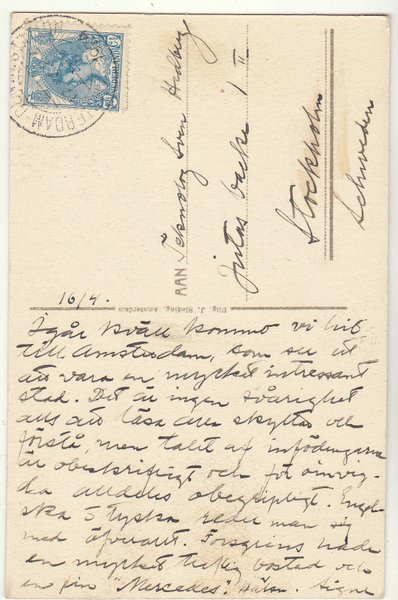 AMSTERDAM
AAN Teknolog Sven Hedberg
Götas backe 1 II
Stockholm
Schweden
Uitg. J. Sleding, Amsterdam
16/4.
Igår kväll kommo vi hit
till Amsterdam, som ser ut
att vara en mycket intressant
stad. Det är ingen svårighet
alls att läsa deras skyltar och
förstå, men talet af infödingarna
är obeskrifligt och för oinvig-
da alldeles obegripligt. Engel-
ska & tyska reder man sig
med öfverallt. Forsgrens hade
en mycket treflig bostad och
en fin "Mercedes". Häls. Signe